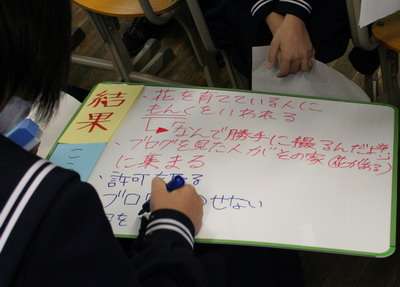 結果
・花を育てている人に
もんくをいわれる
なんで勝手に撮るんだ
・ブログを見た人がその家(花がある)
に集まる
こ
・許可を
ブロ のせない
を